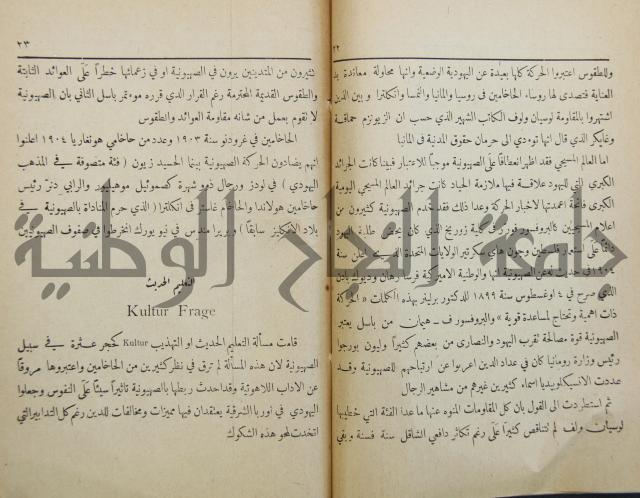 ٢٢
وللطقوس اعتبروا الحركة كلها بعيدة عن اليهودية الوضعية وانها محاولة معاندة يد
العناية فتصدى لها روساء الحاخامين في روسيا والمانيا والنمسا وانكلترا وبين الذين
اشتهروا بالمقاومة لوسيان ولف الكاتب الشهير الذي حسب ان الزيونزم حماقة
وغايكر الذي قال انها تودي الى حرمان حقوق المدنية في المانيا
اما العالم المسيحي فقد اظهر انعطافًا على الصهيونية موجبًا للاعتبار فبينا كانت الجرائد
الكبرى التي لليهود علاقة فيها ملازمة الحياد كانت جرائد العالم المسيحي اليومية
الكبرى فاتحة اعمدتها لاخبار الحركة وعدا ذلك فقد خدم الصهيونية كثيرون من
اعلام المسيحيين كالبروفسور فورر في كلية زوريخ الذي كان يحض طلبة اليهود
على استعمار فلسطين وجون هاي سكرتير الولايات المتحدة الذي اعلن سنة
١٩٠٤ في حديث له عن الصهيونية انها والوطنية الاميركية فرسا رهان
الذي صرح في ٤ اوغسطوس سنة ١٨٩٩ للدكتور برلينر بهذه الكلمات « الحركة
ذات اهمية وتحتاج لمساعدة قوية » والبروفسور ف ـ هيمان من باسل يعتبر
الصهيونية قوة مصالحة تقرب اليهود والنصارى من بعضهم كثيرًا وليون بورجوا
رئيس وزارة رومانيا كان في عداد الذين اعربوا عن ارتياحهم للصهيونية وقد
عددت الانسيكلوبيديا اسماء كثيرين غيرهم من مشاهير الرجال
ثم استطردت الى القول بان كل المقاومات المنوه عنها ما عدا الفئة التي خطيبها
لوسيان ولف لم تتناقص كثيرًا على رغم تكاثر دافعي الشاقل سنة فسنة وبقي
٢٣
كثيرون من المتدينين يرون في الصهيونية او في زعمائها خطرًا على العوائد الثابتة
والطقوس القديمة المحترمة رغم القرار الذي قرره موتمر باسل الثاني بان الصهيونية
لا تقوم بعمل من شانه مقاومة العوائد والطقوس
الحاخامين في غرودنو سنة ١٩٠٣ وعدد من حاخامي هونغاريا ١٩٠٤ اعلنوا
انهم يضادون الحركة الصهيونية بينما الحسيد زيون ( فئة متصوفة في المذهب
اليهودي ) في لودز ورجال ذوو شهرة كصموئيل موهيليور والرابي دنر رئيس
حاخامين هولاندا والحاخام غاستر في انكلترا ( الذي حرم المناداة بالصهيونية في
بلاد الانكليز سابقًا ) و بريرا مندس في نيو يورك انخرطوا في صفوف الصهيونيين
التعليم الحديث
Kultur Frage
قامت مسألة التعليم الحديث او التهذيب Kultur كحجر عثرة في سبيل
الصهيونية لان هذه المسألة لم ترق في نظر كثيرين من الحاخامين واعتبروها مروقًا
عن الاداب اللاهوتية وقد احدث ربطها بالصهيونية تاثيرًا سيئًا على النفوس وجعلوا
اليهودي في اوربا الشرقية يعتقدان فيها مميزات ومخالفات للدين رغم كل التدابير التي
اتخذت لمحو هذه الشكوك
جامعة النجاح الوطنية